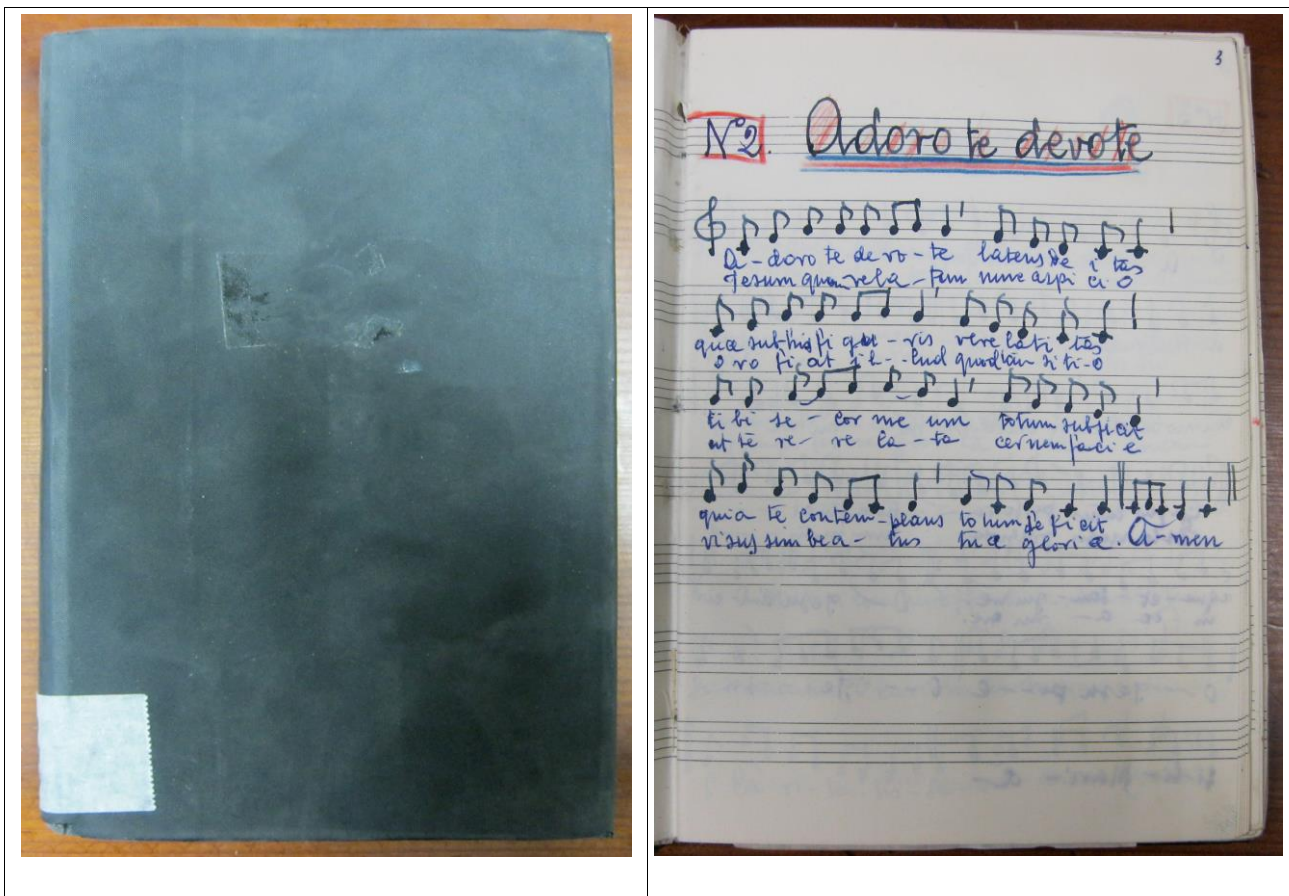 3
N°2. Adoro te devote
A-doro te devo-te latens De i tas
Jesum quem vela-tum nunc aspi ci o
quæ sub his fi gu-ris vere lati tas
o ro fi at il--lud quod tam si ti-o
ti bi se-cor me um totum subjicit
ut te re-ve la-ta cernens faci e
quia te contem-plans totum deficit
visus sim bea-tus tuæ gloriæ. A-men